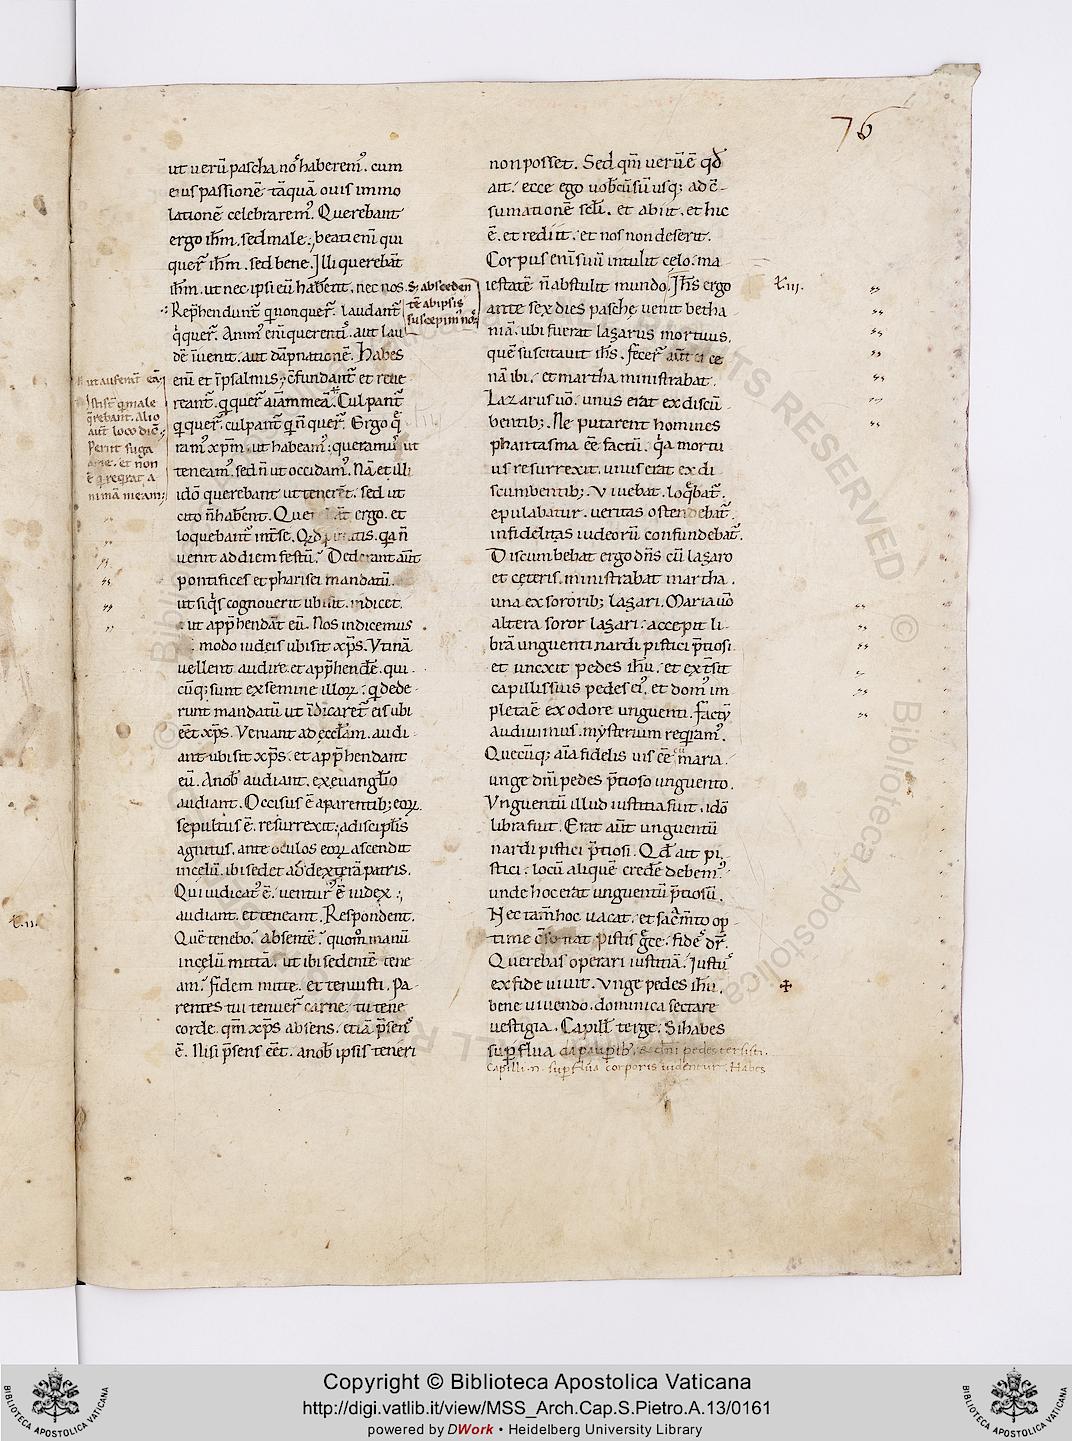 76
ut uerū pascha nōs haberem᾽. cum
eius passionē tāquā ouis immo
lationē celebrarem᾽. Querebant
ergo ihm̄. sed male; beati eni qui
quer̄ ihm̄. sed bene. Illi querebāt
ihm̄. ut nec ipsi eū habent. nec nos.
s. absceden
tē ab ipsis
suscepim᾽ nos
Rep̄hendunt̄ q̇ non quer̄. laudant̄
q̇ quer̄. Anim᾽ eni querentiū. aut lau
dē īuenit. aut dāpnationē. Habes
eni et ī psalmis; cfundant̄ et reue
reant̄. q̇ quer̄ aīam meā. Culpant̄
q̇ quer̄. culpant̄ q̇ n̄ quer̄. Ergo q̄
ram᾽ xp̄m. ut habeam᾽; queram᾽ ut
teneam᾽. sed n̄ ut occidam᾽. Nā et illi
idō querebant ut tenerēt. sed ut
cito n̄ habent. ergo. et
loquebant̄ int̄ se. qa n̄
uenit ad diem festū. Dederant aūt
pontifices et pharisei mandatū.
ut siq̇s cognouerit ubi sit. indicet.
ut app̄hendāt eū. Nos indicemus
modo iudeis ubi sit xp̄s. Vtinā
uellent audire. et app̄hendē. qui
cūq; sunt ex semine illoꝝ. q̇ dede
runt mandatū ut īdicaret̄ eis ubi
eēt xp̄s. Veniant ad eccl̄iam. audi
ant ubi sit xp̄s. et app̄hendant
eū. A nob̄ audiant. ex euangl̄io
audiant. Occisus ē a parentib; eoꝝ.
sepultus ē. resurrexit; a discipl̄is
agnitus. ante oculos eoꝝ ascendit
in celū. ibi sedet ad dexterā patris.
Qui iudicat᾽ ē. uentur᾽ ē iudex;
audiant. et teneant. Respondent.
Quē tenebo? absentē? quom̊ manū
in celū mittā. ut ibi sedentē tene
am? fidem mitte. et tenuisti. Pa
rentes tui tenuer̄ carne. tu tene
corde. qm̄ xp̄s absens. etiā p̄sens
ē. Nisi p̄sens eēt. a nob̄ ipsis teneri
ut auferant eā;
Isti st̄ q̇ male
q̄rebant. Alio
aut̄ loco dic̄;
Periit fuga
a me. et non
ē q̇ reqrat a
nimā meam;
non posset. Sed qm̄ uerū ē qd̄
ait; ecce ego uobcū sū usq; ad c̄
sumationē scl̄i. et abiit. et hic
ē. et rediit. et nos non deserit.
Corpus eni suū intulit celo. ma
iestatē n̄ abstulit mundo. Ih̄s ergo
ante sex dies pasche uenit betha
niā. ubi fuerat lazarus mortuus.
quē suscitauit ih̄s. fecer̄ aūt ei ce
nā ibi. et martha ministrabat.
Lazarus uo̊. unus erat ex discū
bentib;. Ne putarent homines
phantasma eē factū. q̇a mortu
us resurrexit. unus erat ex di
scumbentib;. Viuebat. loq̄bat̄.
epulabatur. ueritas ostendebat̄.
infidelitas iudeorū confundebat̄.
Discumbebat ergo dn̄s cū lazaro
et ceteris. ministrabat martha.
una ex sororib; lazari. Maria uo̊
altera soror lazari. accepit li
brā unguenti nardi pistici p̄tiosi
et uncxit pedes ih̄u. et ext̄sit
capillis suis pedes ei᾽. et dom᾽ im
pleta ē ex odore unguenti. factū
audiuimus. mysterium reqram᾽.
Quecūq; aīa fidelis uis cū maria.
unge dni pedes p̄tioso unguento.
Vnguentū illud iustitia fuit. ideo
libra fuit. Erat aūt unguentū
nardi pistici p̄tiosi. Qd̄ ait pi
stici; locū aliquē credē debem᾽.
unde hoc erat unguentū p̄tiosū.
Nec tam̄ hoc uacat. et sac̄mto op
time csonat. Pistis gce. fides dr̄.
Querebas operari iustitiā. Iustus
ex fide uiuit. Vnge pedes ih̄u.
bene uiuendo. dominica sectare
uestigia. Capill̄ terge. Si habes
sup̄flua da paup̄ib᾽. & dni pedes tersisti.
Capilli n̄ sup̄flua corporis uidentur. Habes
ł.iii.
ł.ii.
Copyright © Biblioteca Apostolica Vaticana
http://digi.vatlib.it/view/MSS_Arch.Cap.S.Pietro.A.13/0161
powered by DWork • Heidelberg University Library
BIBLIOTECA APOSTOLICA VATICANA
BIBLIOTECA APOSTOLICA VATICANA
© Biblioteca Apostolica Vaticana ALL RIGHTS RESERVED